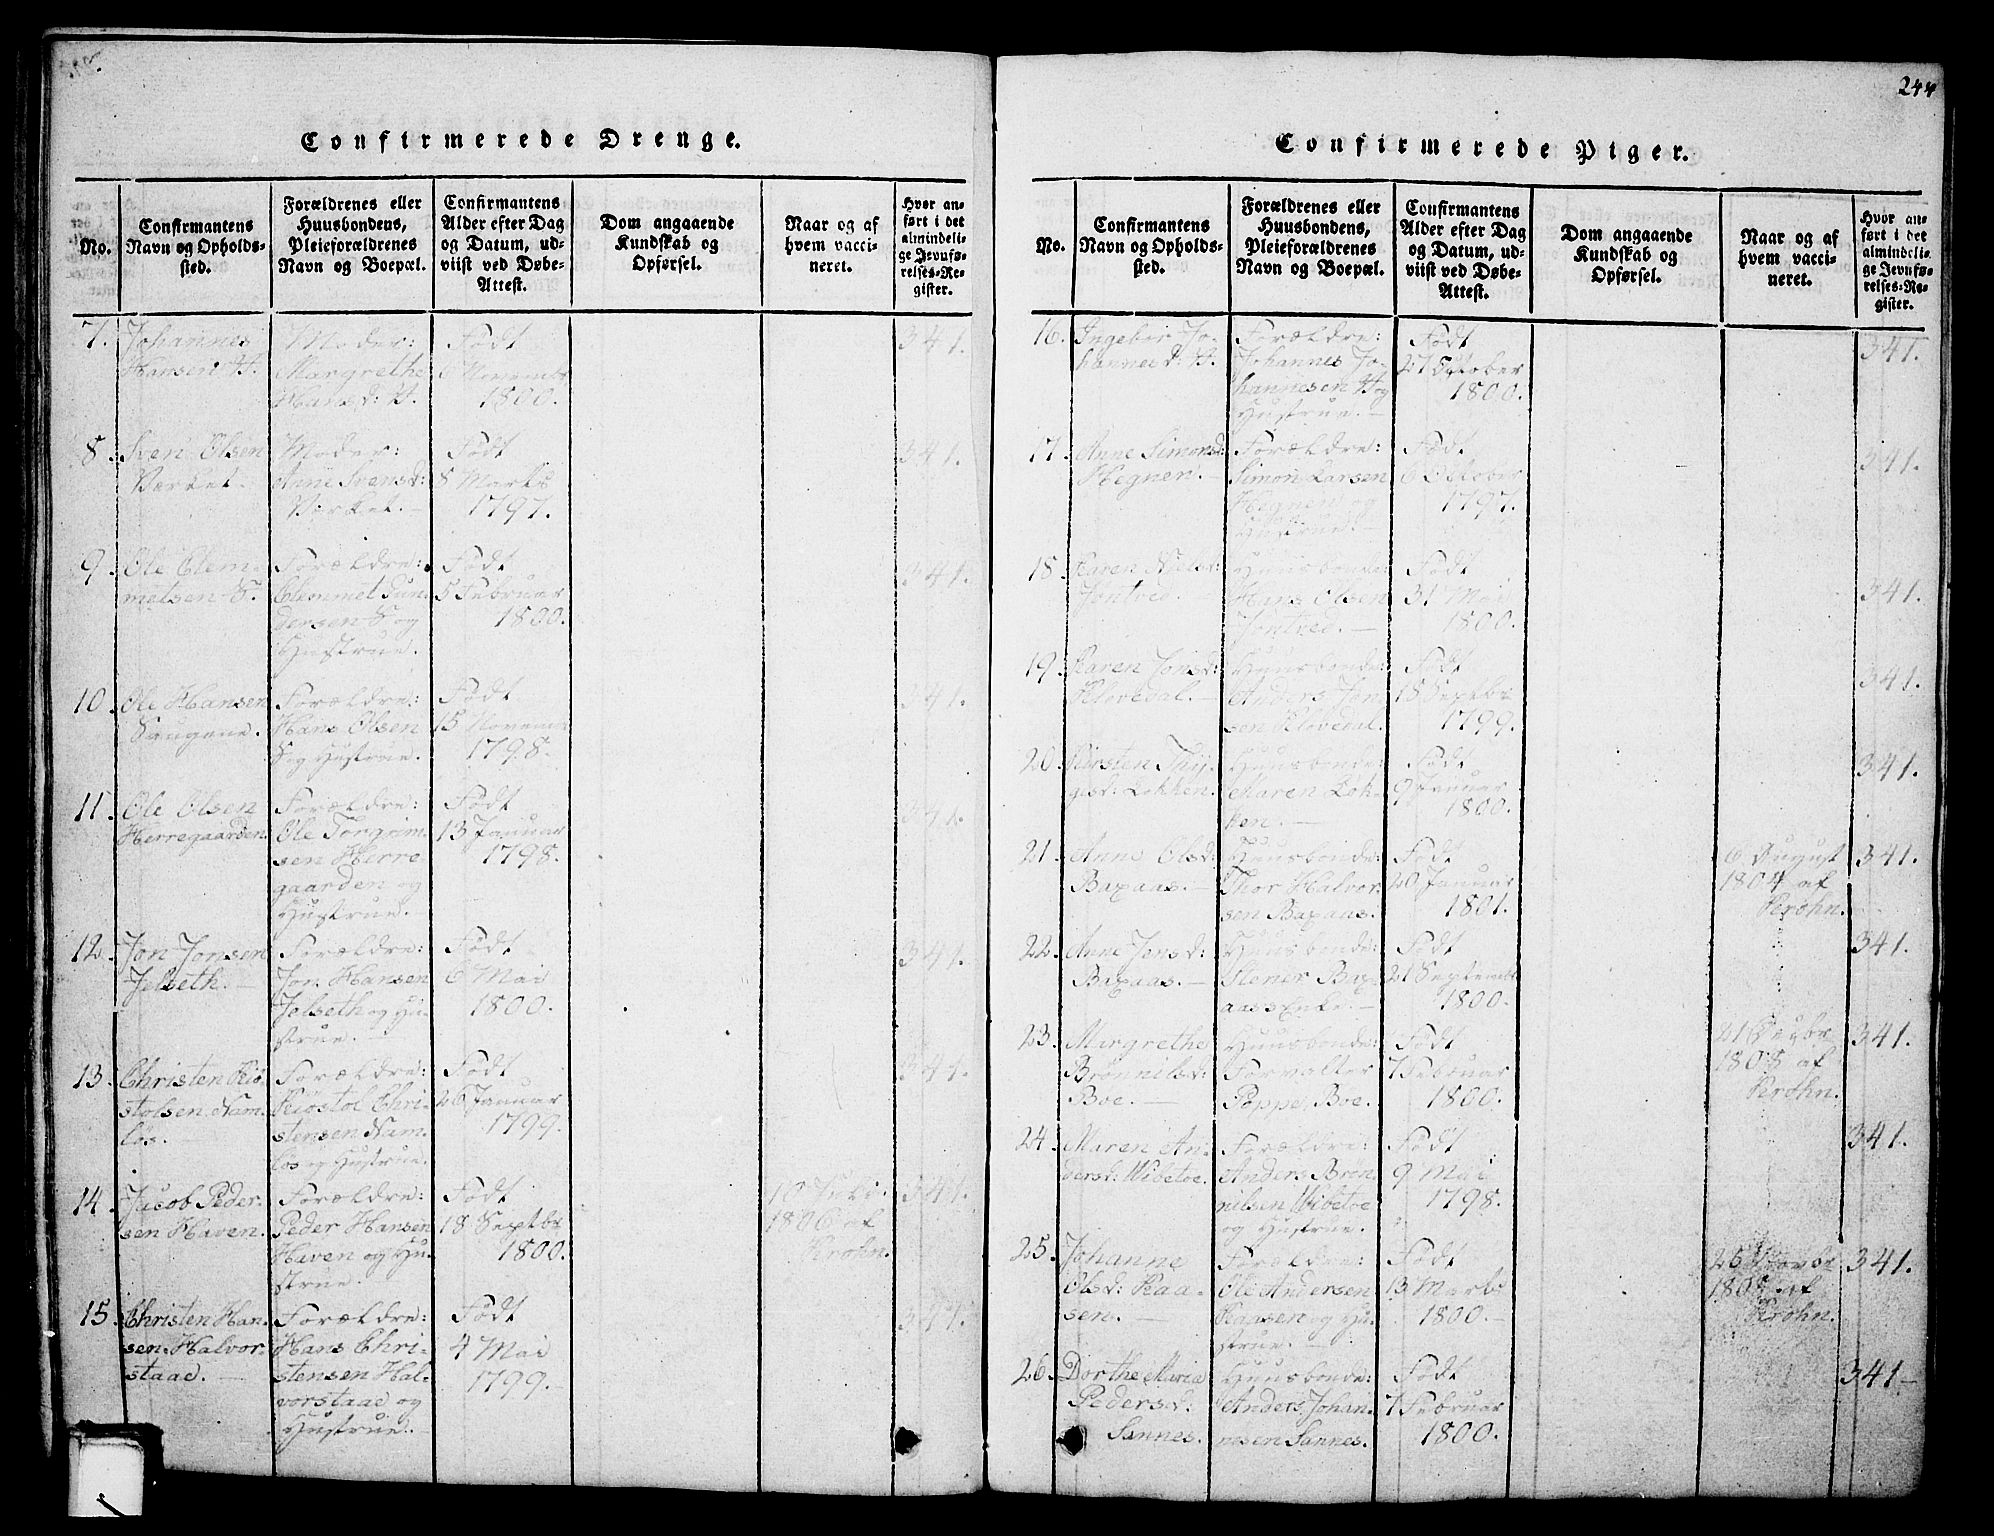 244
Confirmerede Drenge.
No.
Confirmantens
Navn og Opholds-
sted.
Forældrenes eller
Huusbondens,
Pleieforældrenes
Navn og Boepæl.
Confirmantens
Alder efter Dag
og Datum, ud-
viist ved Døbe-
Attest.
Dom angaaende
Kundskab og
Opførsel.
Naar og af
hvem vacci-
neret.
Hvor an-
ført i det
almindeli-
ge Jevnfø-
relses-Re-
gister.
7.
Johannes
Hansen H.
Moder:
Margrethe
Hansd: H.
Født
6 Novembr
1800.
341.
8.
Sven Olsen
Værket.
Moder:
Anne Svensd:
Værket.
Født
8 Marts
1797.
341.
9.
Ole Clem-
metsen S.
Forældre:
Clemmet Gun-
dersen S og
Hustrue.
Født
5 Februar
1800.
341.
10.
Ole Hansen
Saugene.
Forældre:
Hans Olsen
S og Hustrue.
Født
15 Novem
1798.
341.
11.
Ole Olsen
Herregaarden.
Forældre:
Ole Torgrim-
sen Herre-
gaarden og
Hustrue.
Født
13 Januar
1798.
341.
12.
Jon Jonsen
Jelseth.
Forældre:
Jon Hansen
Jelseth og Hu-
strue.
Født
6 Mai
1800.
341.
13.
Christen Kiö-
stolsen Nam-
lös.
Forældre:
Kiöstol Chri-
stensen Nam-
lös og Hustrue.
Født
26 Januar
1799.
341.
14.
Jacob Peder-
sen Haven.
Forældre:
Peder Hansen
Haven og Hu-
strue.
Født
18 Septbr
1800.
16 Juli
1806 af
Krohn.
341.
15.
Christen Han-
sen Halvor-
staae.
Forældre:
Hans Chri-
stensen Hal-
vorstaae og
Hustrue.
Født
4 Mai
1799.
341.
Confirmerede Piger.
No.
Confirmantens
Navn og Opholds-
sted.
Forældrenes eller
Huusbondens,
Pleieforældrenes
Navn og Boepæl.
Confirmantens
Alder efter Dag
og Datum, ud-
viist ved Døbe-
Attest.
Dom angaaende
Kundskab og
Opførsel.
Naar og af
hvem vacci-
neret.
Hvor an-
ført i det
almindeli-
ge Jevnfø-
relses-Re-
gister.
16.
Ingebor Jo-
hannesd: H.
Forældre:
Johannes Jo-
hannesen H og
Hustrue.
Født
27 October
1800.
341.
17.
Anne Simonsd:
Hegnen.
Forældre:
Simon Larsen
Hegnen og
Hustrue.
Født
6 October
1797.
341.
18.
Karen Nielsd:
Jontved.
Huusbonde:
Hans Olsen
Jontved.
Født
31 Mai
1800.
341.
19.
Karen Jonsd:
Klovedal.
Huusbonde:
Anders Jon-
sen Klovedal.
Født
18 Septbr
1799.
341.
20.
Kirsten Thy-
gesd: Lökken.
Huusbonde:
Maren Lök-
ken.
Født
9 Januar
1800.
341.
21.
Anne Olsd:
Baxaas.
Huusbonde:
Thor Halvor-
sen Baxaas.
Født
20 Januar
1801.
6 August
1804 af
Krohn.
341.
22.
Anne Jensd:
Baxaas.
Huusbonde:
Stener Bax-
aass Enke.
Født
21 Septembr
1800.
341.
23.
Margrethe
Brønnilsd:
Boe.
Huusbonde:
Forvalter
Poppe, Boe.
Født
7 Februar
1800.
1805 af
Krohn.
341.
24.
Maren An-
dersd: Wibetoe.
Forældre:
Anders Brön-
nilsen Wibetoe
og Hustrue.
Født
9 Mai
1798.
341.
25.
Johanne
Olsd: Kaa-
sen.
Forældre:
Ole Andersen
Kaasen og Hu-
strue.
Født
13 Marts
1800.
26 Novbr
1805 af
Krohn.
341.
26.
Dorthe Maria
Pedersd:
Sannes.
Huusbonde:
Anders Johan-
nesen Sannes.
Født
7 Februar
1800.
341.